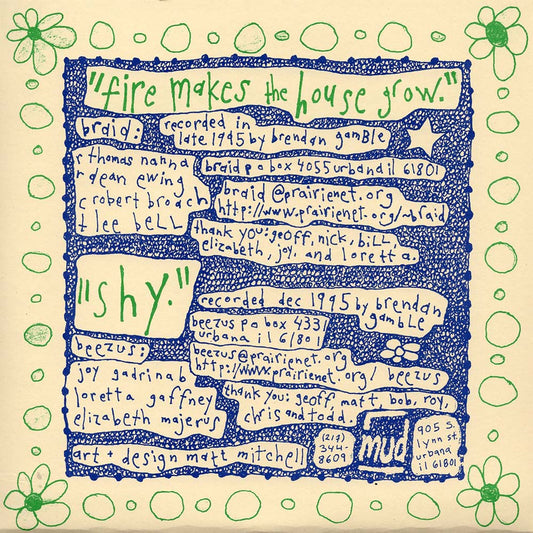 "fire makes the house grow."
braid:
recorded in
late 1995 by brendan gamble
braid po box 4055 urbana il 61801
r thomas nanna
r dean ewing
c robert broach
t lee bell
braid@prairienet.org
http://www.prairienet.org/~braid
thank you: geoff, nick, bill,
elizabeth, joy, and loretta
"shy."
recorded dec 1995 by brendan
gamble
beezus po box 4331
urbana il 61801
beezus:
beezus@prairienet.org
http://www.prairienet.org/beezus
joy gadrinab
loretta gaffney
elizabeth majerus
thank you: geoff, matt, bob, roy,
chris and todd.
art + design matt mitchell
(217)
344-
8609
mud
905 s.
lynn st.
urbana
il 61801